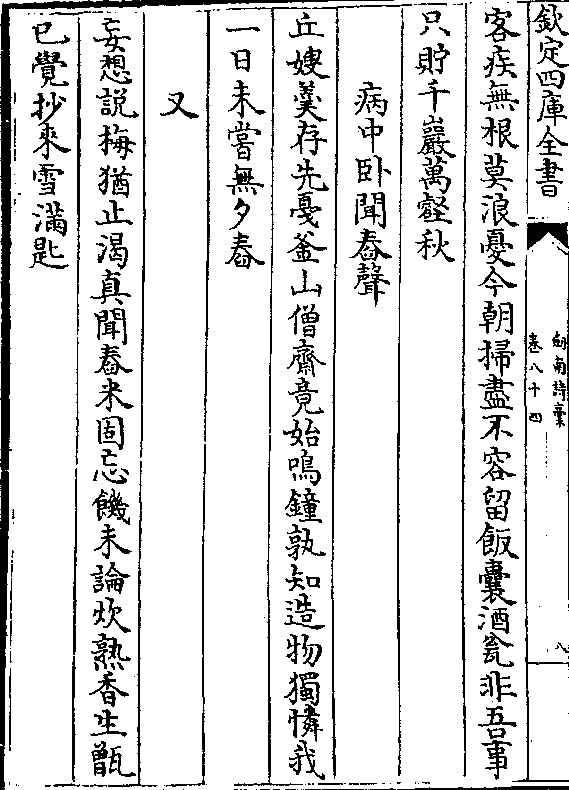 欽定四庫全書
劍南詩藁
卷八十四
八
客疾無根莫浪憂今朝掃盡不容留飯囊酒瓮非吾事
只貯千巖萬壑秋
病中卧聞舂聲
丘嫂羮存先戞釜山僧齋竟始鳴鐘孰知造物獨憐我
一日未嘗無夕舂
又
妄想説梅猶止渇真聞舂米固忘饑未論炊熟香生甑
已覺抄來雪滿匙